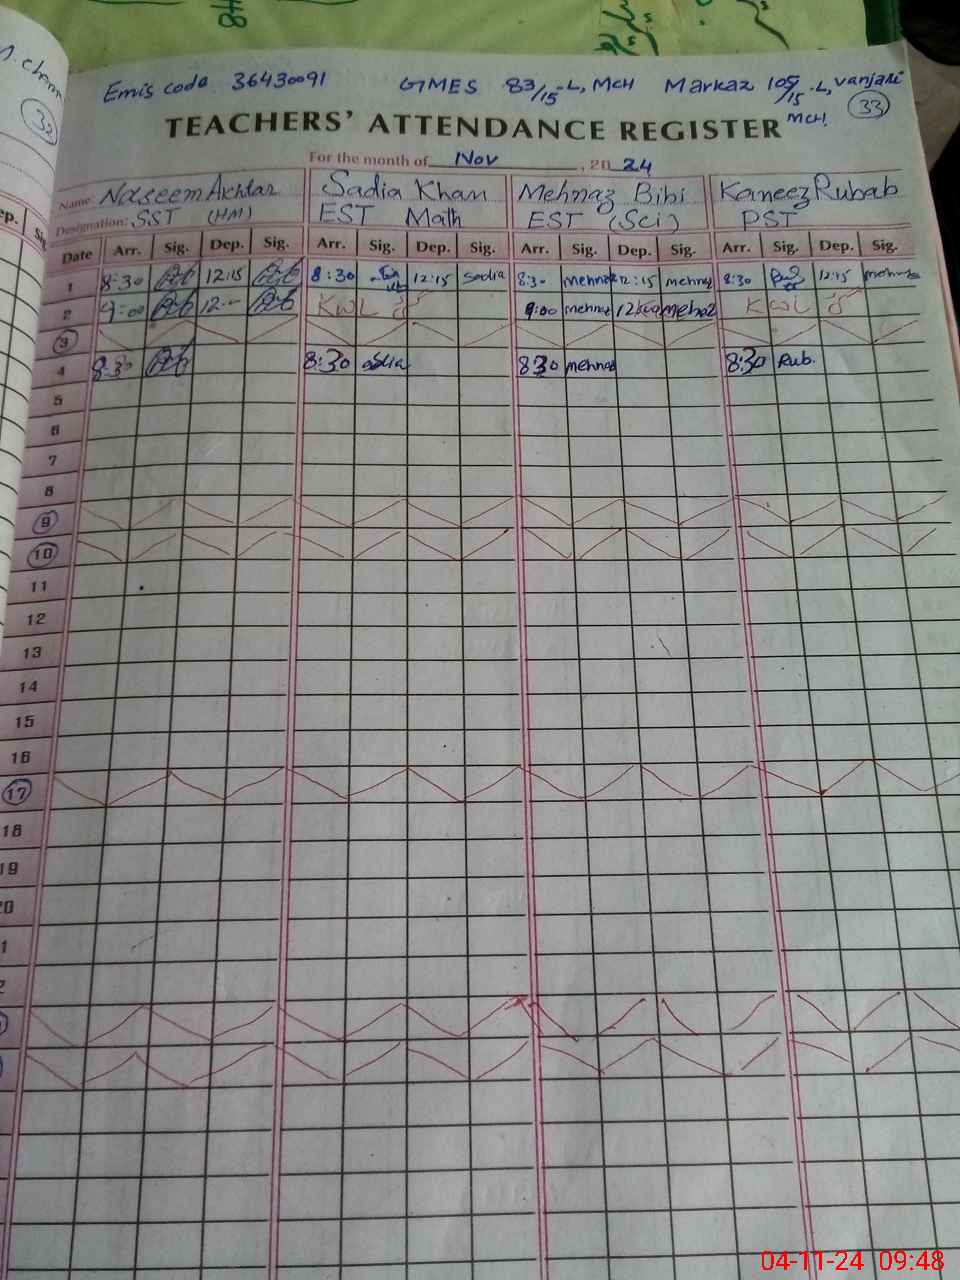 Emis code 36430091 GMES 83/15-L, MCH Markaz 105/15-L, Vanjari
MCH
32
33
TEACHERS' ATTENDANCE REGISTER
For the month of Nov , 20 24
Name: Naseem Akhtar Sadia Khan Mehnaz Bibi Kaneez Rubab
Designation: SST (HM) EST Math EST (Sci) PST
Date Arr. Sig. Dep. Sig. Arr. Sig. Dep. Sig. Arr. Sig. Dep. Sig. Arr. Sig. Dep. Sig.
1 8:30 12:15 8:30 12:15 Sadia 8:30 mehnaz 12:15 mehnaz 8:30 12:15
2 9:00 12:00 9:00 mehnaz
3
4 8:30 8:30 Sadia 8:30 mehnaz 8:30 Rub.
5
6
7
8
9
10
11
12
13
14
15
16
17
18
19
04-11-24 09:48